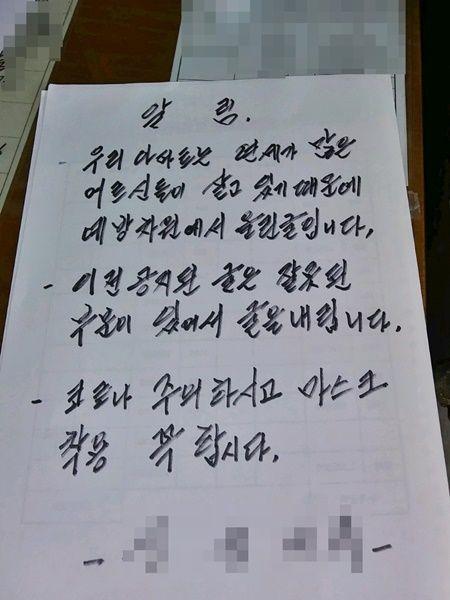 알 림.
- 우리 아파트는 연세가 많은
어르신들이 살고 있기 때문에
예방차원에서 올린글입니다.
- 이전 공지된 글은 잘못된
부분이 있어서 글을 내립니다.
- 코로나 주의 하시고 마스크
착용 꼭 합시다.